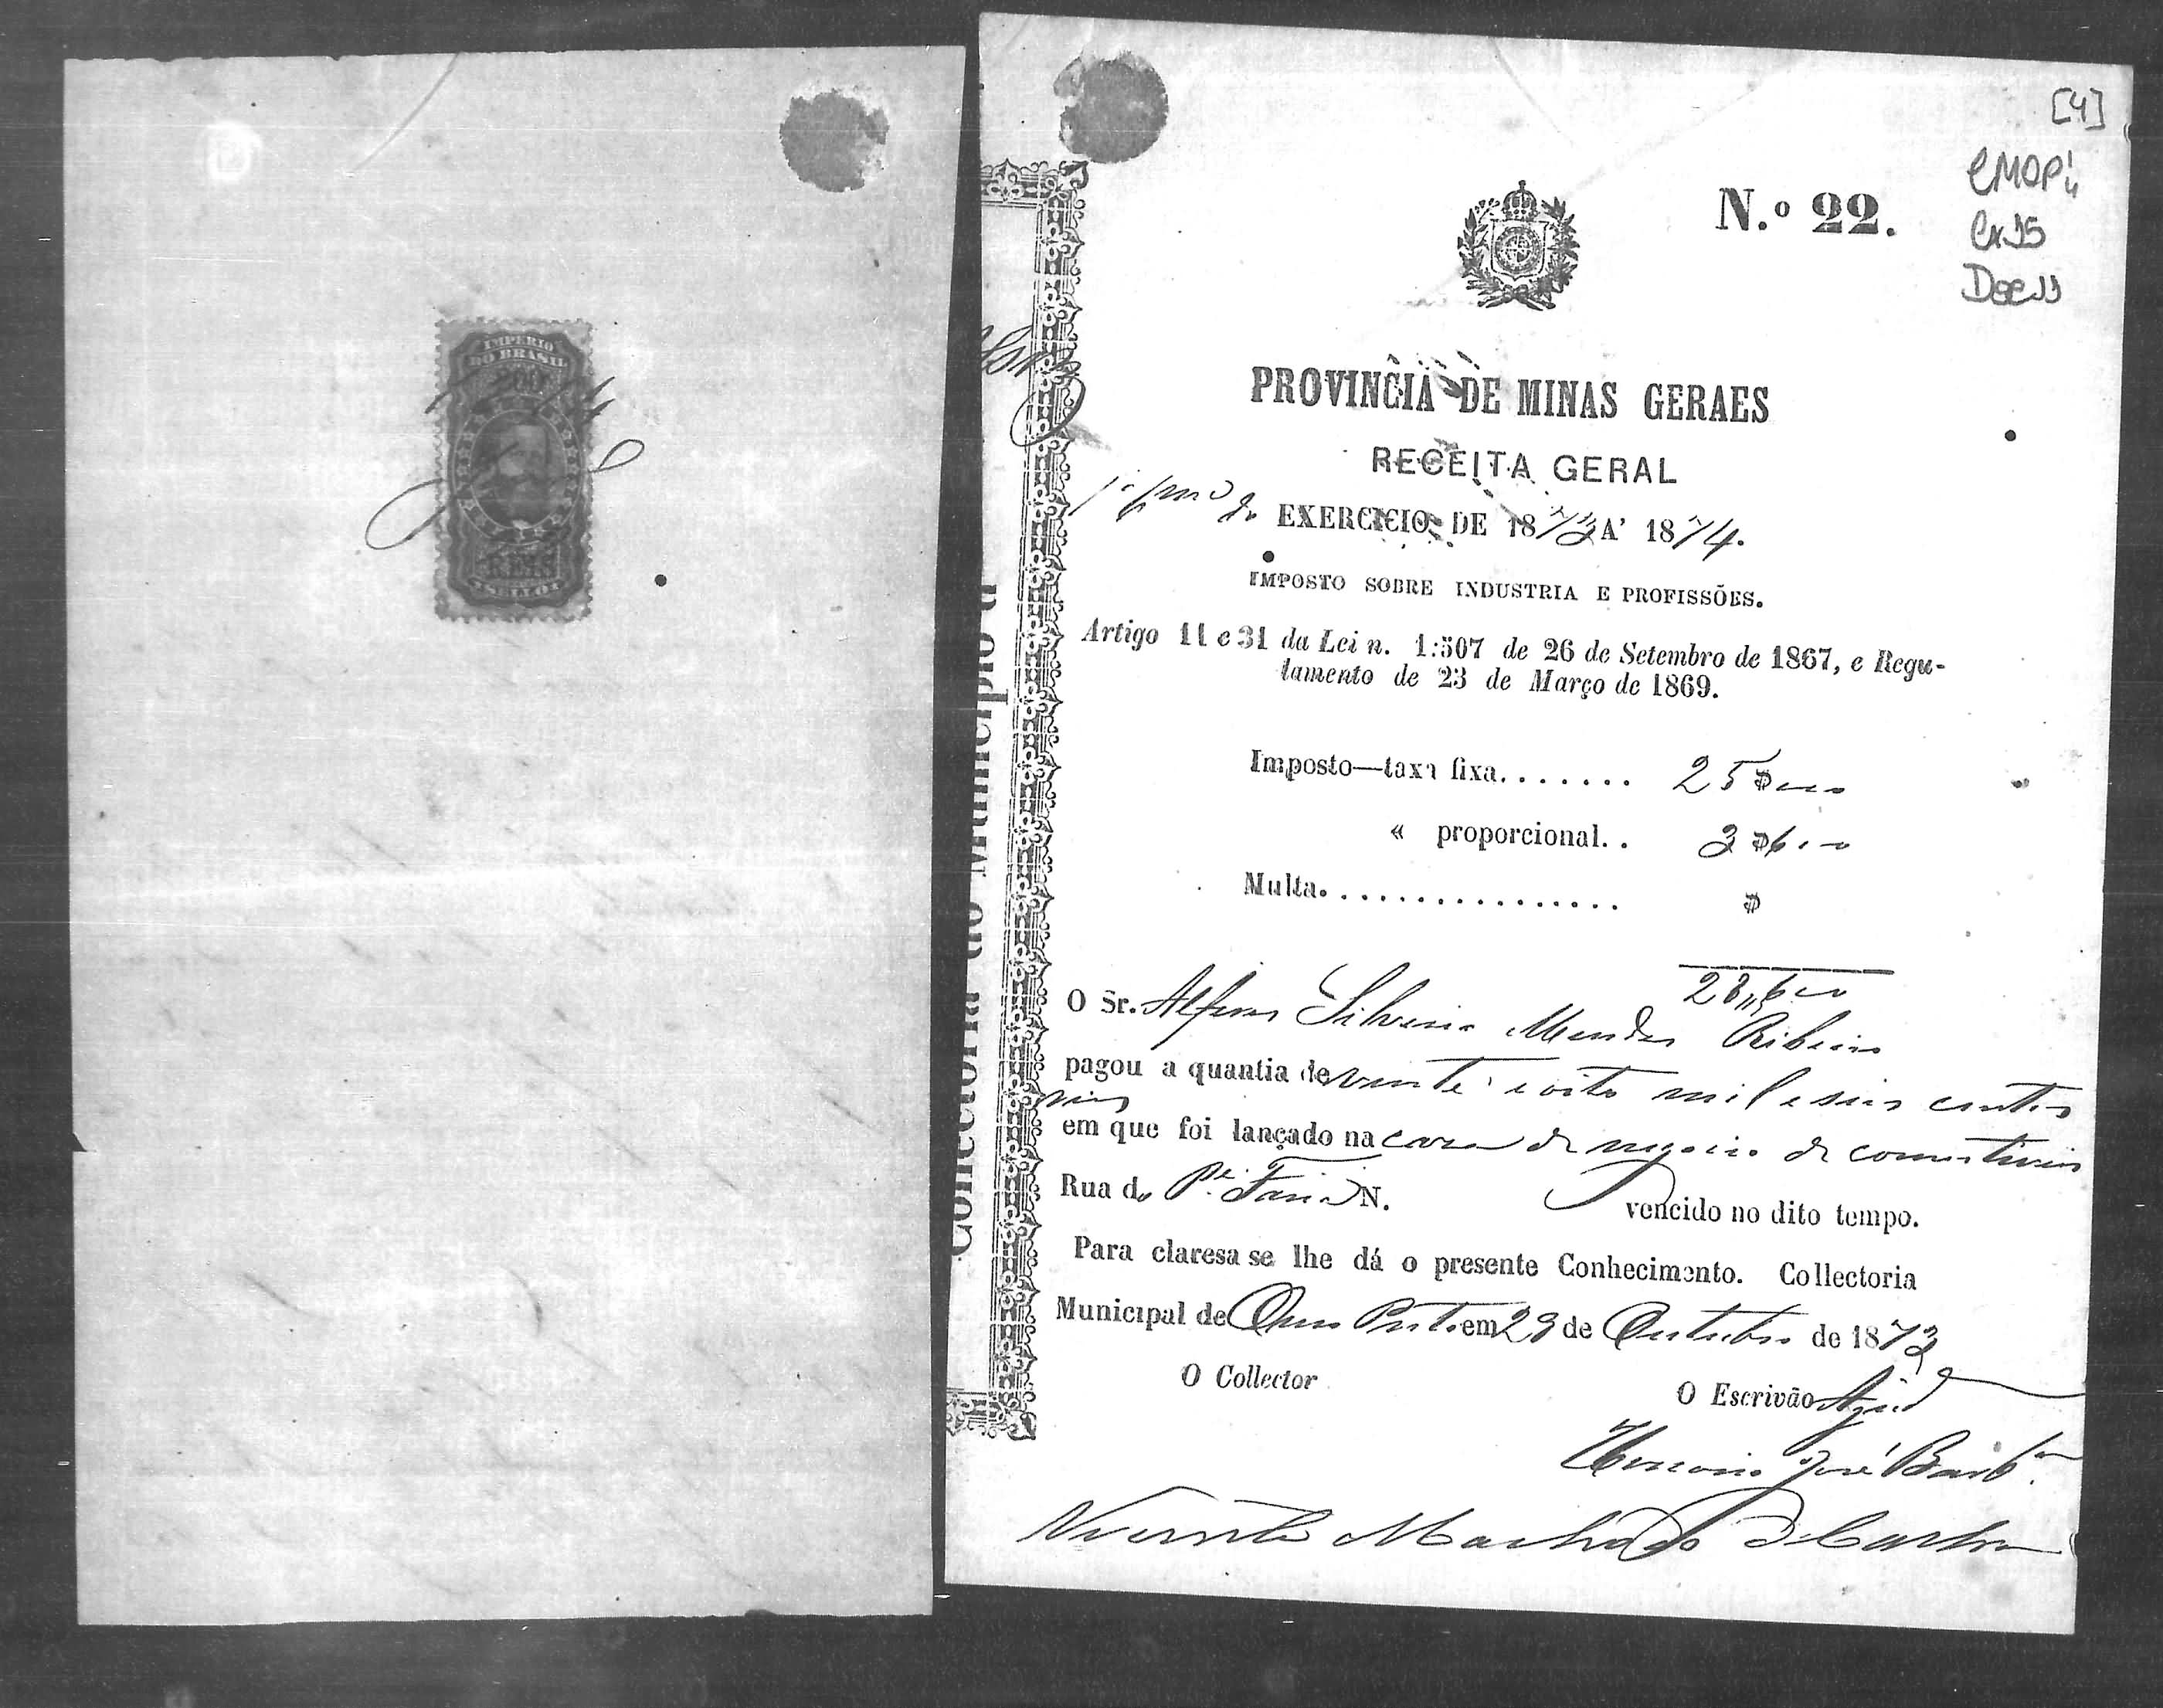 IMPERIO
DO BRASIL
200
REIS
SELLO
[4]
CMOP
Cx 15
Doc 11
N.o 22.
PROVINCIA DE MINAS GERAES
RECEITA GERAL
EXERCICIO DE 1873 A' 1874.
IMPOSTO SOBRE INDUSTRIA E PROFISSÕES.
Artigo 11 e 31 da Lei n. 1:507 de 26 de Setembro de 1867, e Regu-
lamento de 23 de Março de 1869.
Imposto—taxa fixa....... 25$000
« proporcional.. 3$600
Multa................ $
28,,600
O Sr. Silverio Mendes Ribeiro
pagou a quantia de vinte e oito mil e seis centos
reis
em que foi lançado na casa de negocio de comestiveis
Rua do Pe. Faria N. vencido no dito tempo.
Para claresa se lhe dá o presente Conhecimento. Collectoria
Municipal de Ouro Preto em 28 de Outubro de 1873
O Collector
O Escrivão Ajud
José Barb.
Vicente Machado de Castro
Collectoria do Municipio d